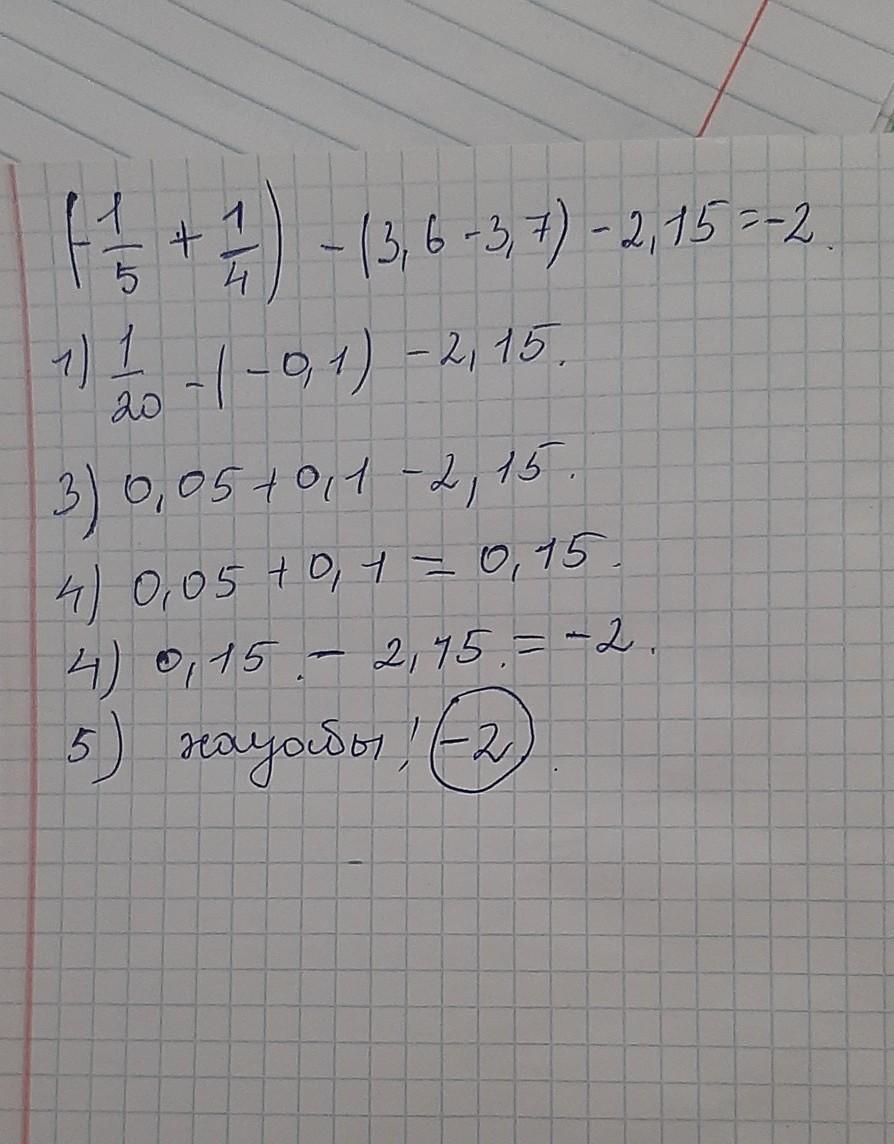 (-1/5 + 1/4) - (3,6 - 3,7) - 2,15 = -2.
1) 1/20 - (-0,1) - 2,15.
3) 0,05 + 0,1 - 2,15.
4) 0,05 + 0,1 = 0,15.
4) 0,15. - 2,15. = -2.
5) жауабы! -2.